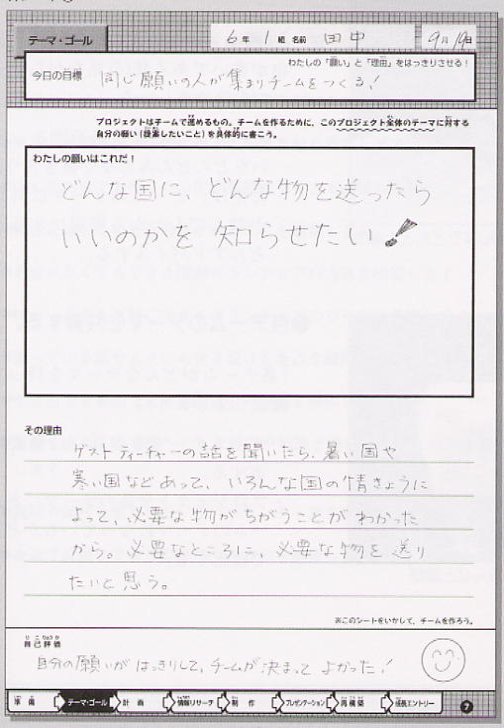 テーマ・ゴール
6年 1組 名前 田中 9月19日
わたしの「願い」と「理由」をはっきりさせる!
今日の目標 同じ願いの人が集まりチームをつくる!
プロジェクトはチームで進めるもの。チームを作るために、このプロジェクト全体のテーマに対する
自分の願い(提案したいこと)を具体的に書こう。
わたしの願いはこれだ!
どんな国に、どんな物を送ったら
いいのかを 知らせたい!
その理由
ゲストティーチャーの話を聞いたら、暑い国や
寒い国などあって、いろんな国の情きょうに
よって、必要な物がちがうことが わかった
から。必要なところに、必要な物を送り
たいと思う。
※このシートをいかして、チームを作ろう。
自己評価
自分の願いが はっきりして、チームが決まって よかった!
準備 テーマ・ゴール 計画 情報リサーチ 制作 プレゼンテーション 再構築 成長エントリー 7